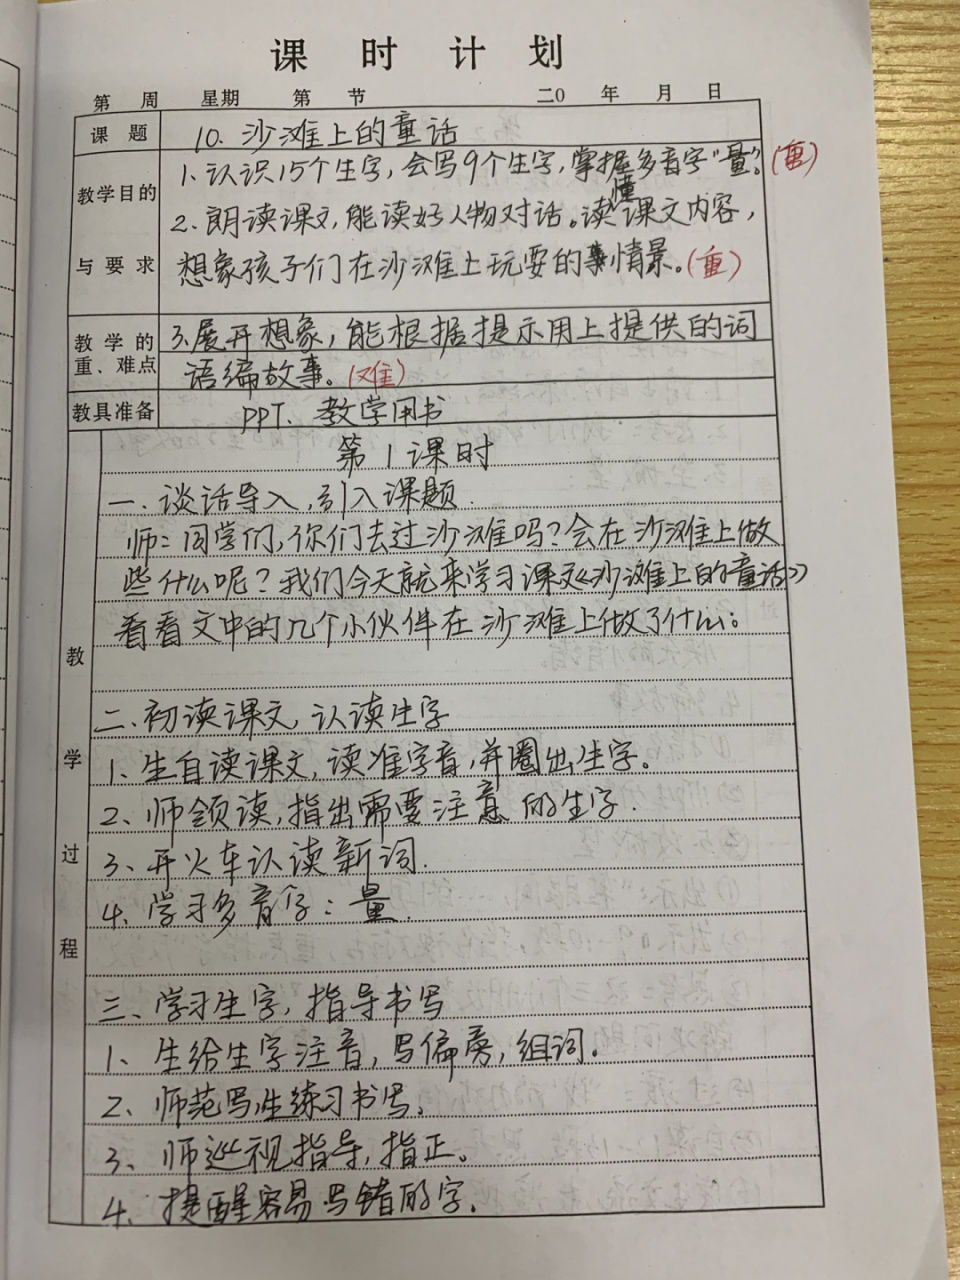 课时计划
第 周 星期 第 节 二0 年 月 日
课题 10. 沙滩上的童话
教学目的与要求
1、认识15个生字，会写9个生字，掌握多音字"量"。(重)
2、朗读课文，能读好人物对话。读懂课文内容，
想象孩子们在沙滩上玩耍的事情景。(重)
教学的重、难点
3.展开想象，能根据提示用上提供的词
语编故事。(难)
教具准备 PPT、教学用书
教学过程
第1课时
一.谈话导入,引入课题.
师：同学们,你们去过沙滩吗？会在沙滩上做
些什么呢？我们今天就来学习课文《沙滩上的童话》
看看文中的几个小伙伴在沙滩上做了什么。
二.初读课文,认读生字
1、生自读课文,读准字音,并圈出生字。
2、师领读,指出需要注意的生字.
3、开火车认读新词.
4、学习多音字：量.
三、学习生字，指导书写
1、生给生字注音,写偏旁,组词。
2、师范写,生练习书写。
3、师巡视指导,指正。
4、提醒容易写错的字.